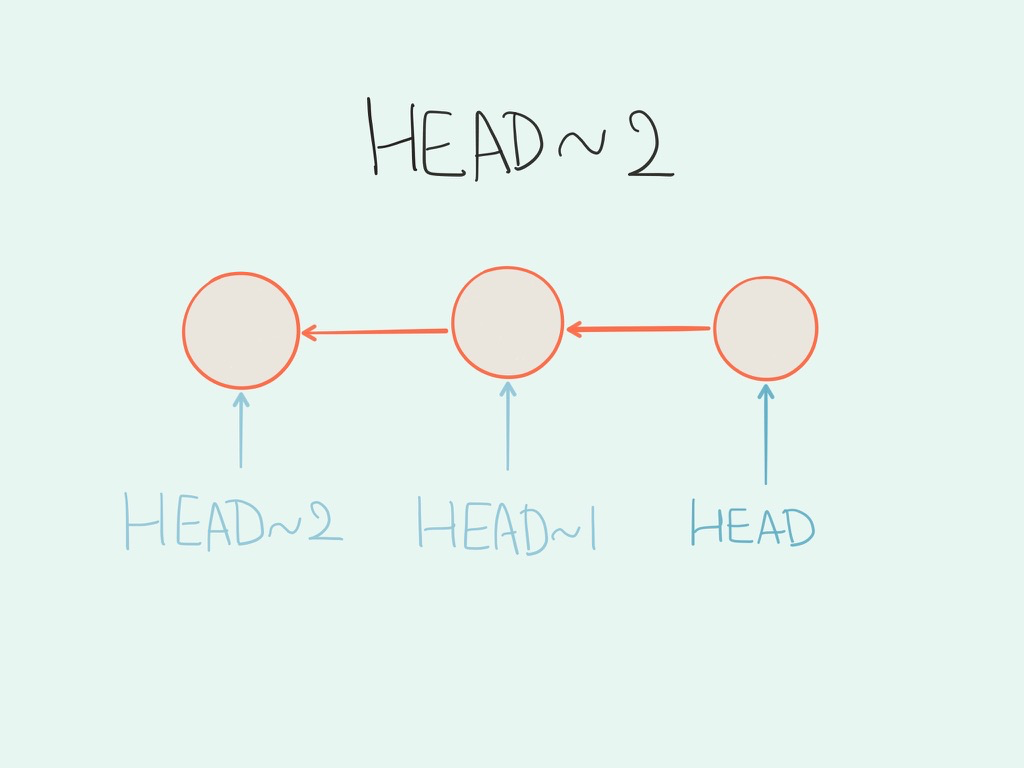 HEAD~2
HEAD~2 HEAD~1 HEAD